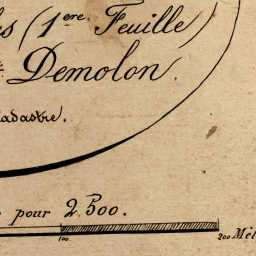 (1ere. Feuille)
Demolon.
cadastre.
pour 2500.
100 200 Mèt